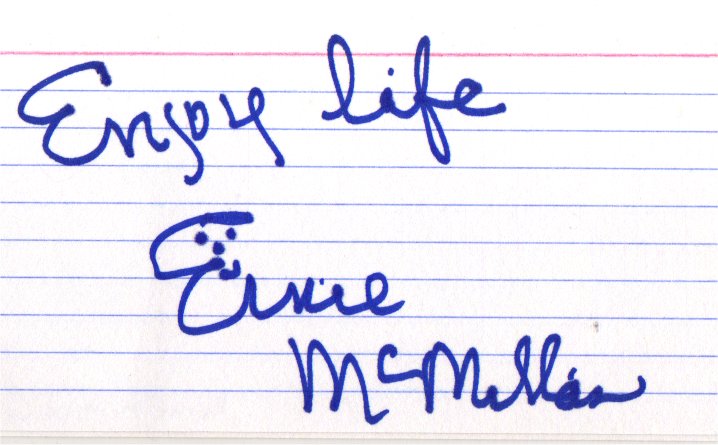 Enjoy life
Ernie
McMillan